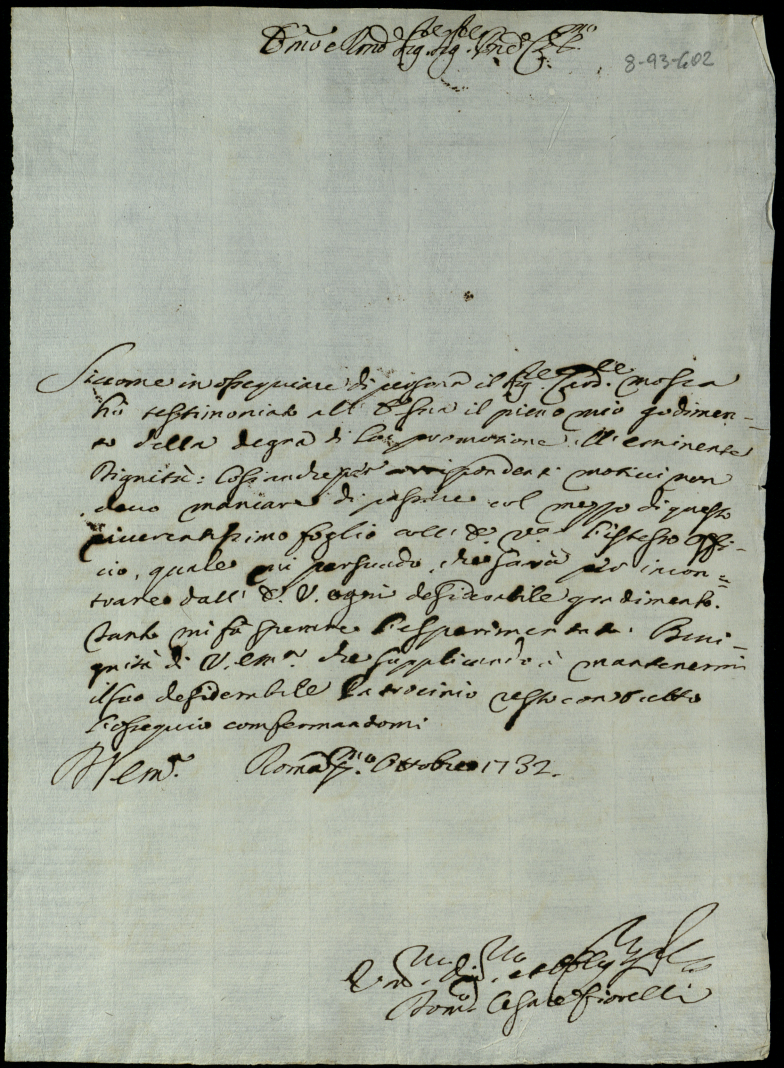 Em̃o e Rmo Sig.re Sig.re Pne Col.mo
8-93-602
Siccome in ossequiare di persona il Sig.re Card.le Mosca
hò testimoniato all' E. Sua il pieno mio godimen-
to della degna di Lui promozione all'eminente
Dignità: Così anche per corrispondenti motivi non
devo mancare di passare col mezzo di questo
riverentissimo foglio coll' E. V.ra l'istesso offi-
cio, quale mi persuado, che sarà per incon=
trare dall' E. V. ogni desiderabile gradimento.
Tanto mi fà sperare l'esperimentata Beni-
gnità di V. Em.za che supplicando à mantenermi
il suo desiderabile Patrocinio resto con tutto
l'ossequio confermandomi
D V. Em.za Roma p.mo Ottobre 1732.
Um.mo Div.mo et Obblig.
Cesare Fiorelli